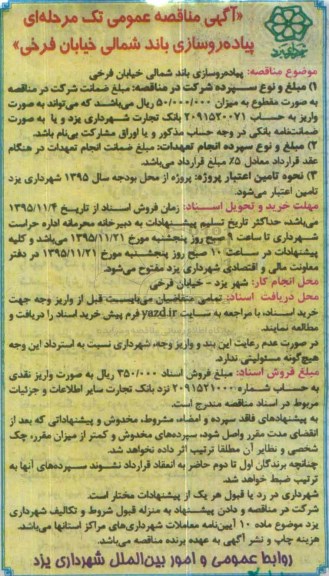 «آگهی مناقصه عمومی تک مرحله‌ای
پیاده‌روسازی باند شمالی خیابان فرخی»
شهرداری یزد
موضوع مناقصه: پیاده‌روسازی باند شمالی خیابان فرخی
۱) مبلغ و نوع سپرده شرکت در مناقصه: مبلغ ضمانت شرکت در مناقصه
به صورت مقطوع به میزان ۵۰/۰۰۰/۰۰۰ ریال می‌باشد که می‌تواند به صورت
واریز به حساب ۲۰۹۱۵۲۰۰۷۱ بانک تجارت شهرداری یزد و یا به صورت
ضمانتنامه بانکی در وجه حساب مذکور و یا اوراق مشارکت بی‌نام باشد.
۲) مبلغ و نوع سپرده انجام تعهدات: مبلغ ضمانت انجام تعهدات در هنگام
عقد قرارداد معادل ۵٪ مبلغ قرارداد می‌باشد.
۳) نحوه تامین اعتبار پروژه: پروژه از محل بودجه سال ۱۳۹۵ شهرداری یزد
تامین اعتبار می‌شود.
مهلت خرید و تحویل اسناد: زمان فروش اسناد از تاریخ ۱۳۹۵/۱۱/۴
می‌باشد، حداکثر تاریخ تسلیم پیشنهادات به دبیرخانه محرمانه اداره حراست
شهرداری تا ساعت ۹ صبح روز پنجشنبه مورخ ۱۳۹۵/۱۱/۲۱ می‌باشد و کلیه
پیشنهادات در ساعت ۱۰ صبح روز پنجشنبه مورخ ۱۳۹۵/۱۱/۲۱ در دفتر
معاونت مالی و اقتصادی شهرداری یزد مفتوح می‌شود.
محل انجام کار: شهر یزد - خیابان فرخی
محل دریافت اسناد: تمامی متقاضیان می‌بایست قبل از واریز وجه جهت
خرید اسناد، با مراجعه به سایت yazd.ir فرم پیش خرید اسناد را دریافت و
مطالعه نمایند.
در صورت عدم رعایت این بند و واریز وجه، شهرداری نسبت به استرداد این وجه
هیچ‌گونه مسئولیتی ندارد.
مبلغ فروش اسناد: مبلغ فروش اسناد ۳۵۰/۰۰۰ ریال به صورت واریز نقدی
به حساب شماره ۲۰۹۱۵۲۱۰۰۰ نزد بانک تجارت سایر اطلاعات و جزئیات
مربوط در اسناد مناقصه مندرج است.
به پیشنهادهای فاقد سپرده و امضاء، مشروط، مخدوش و پیشنهاداتی که بعد از
انقضای مدت مقرر واصل شود، سپرده‌های مخدوش و کمتر از میزان مقرر، چک
شخصی و نظایر آن مطلقا ترتیب اثر داده نخواهد شد.
چنانچه برندگان اول تا دوم حاضر به انعقاد قرارداد نشوند سپرده‌های آنها به
ترتیب ضبط خواهد شد.
شهرداری در رد یا قبول هر یک از پیشنهادات مختار است.
شرکت در مناقصه و دادن پیشنهاد به منزله قبول شروط و تکالیف شهرداری
یزد موضوع ماده ۱۰ آیین‌نامه معاملات شهرداری‌های مراکز استانها می‌باشد.
هزینه چاپ و نشر آگهی به عهده برنده مناقصه می‌باشد.
روابط عمومی و امور بین‌الملل شهرداری یزد